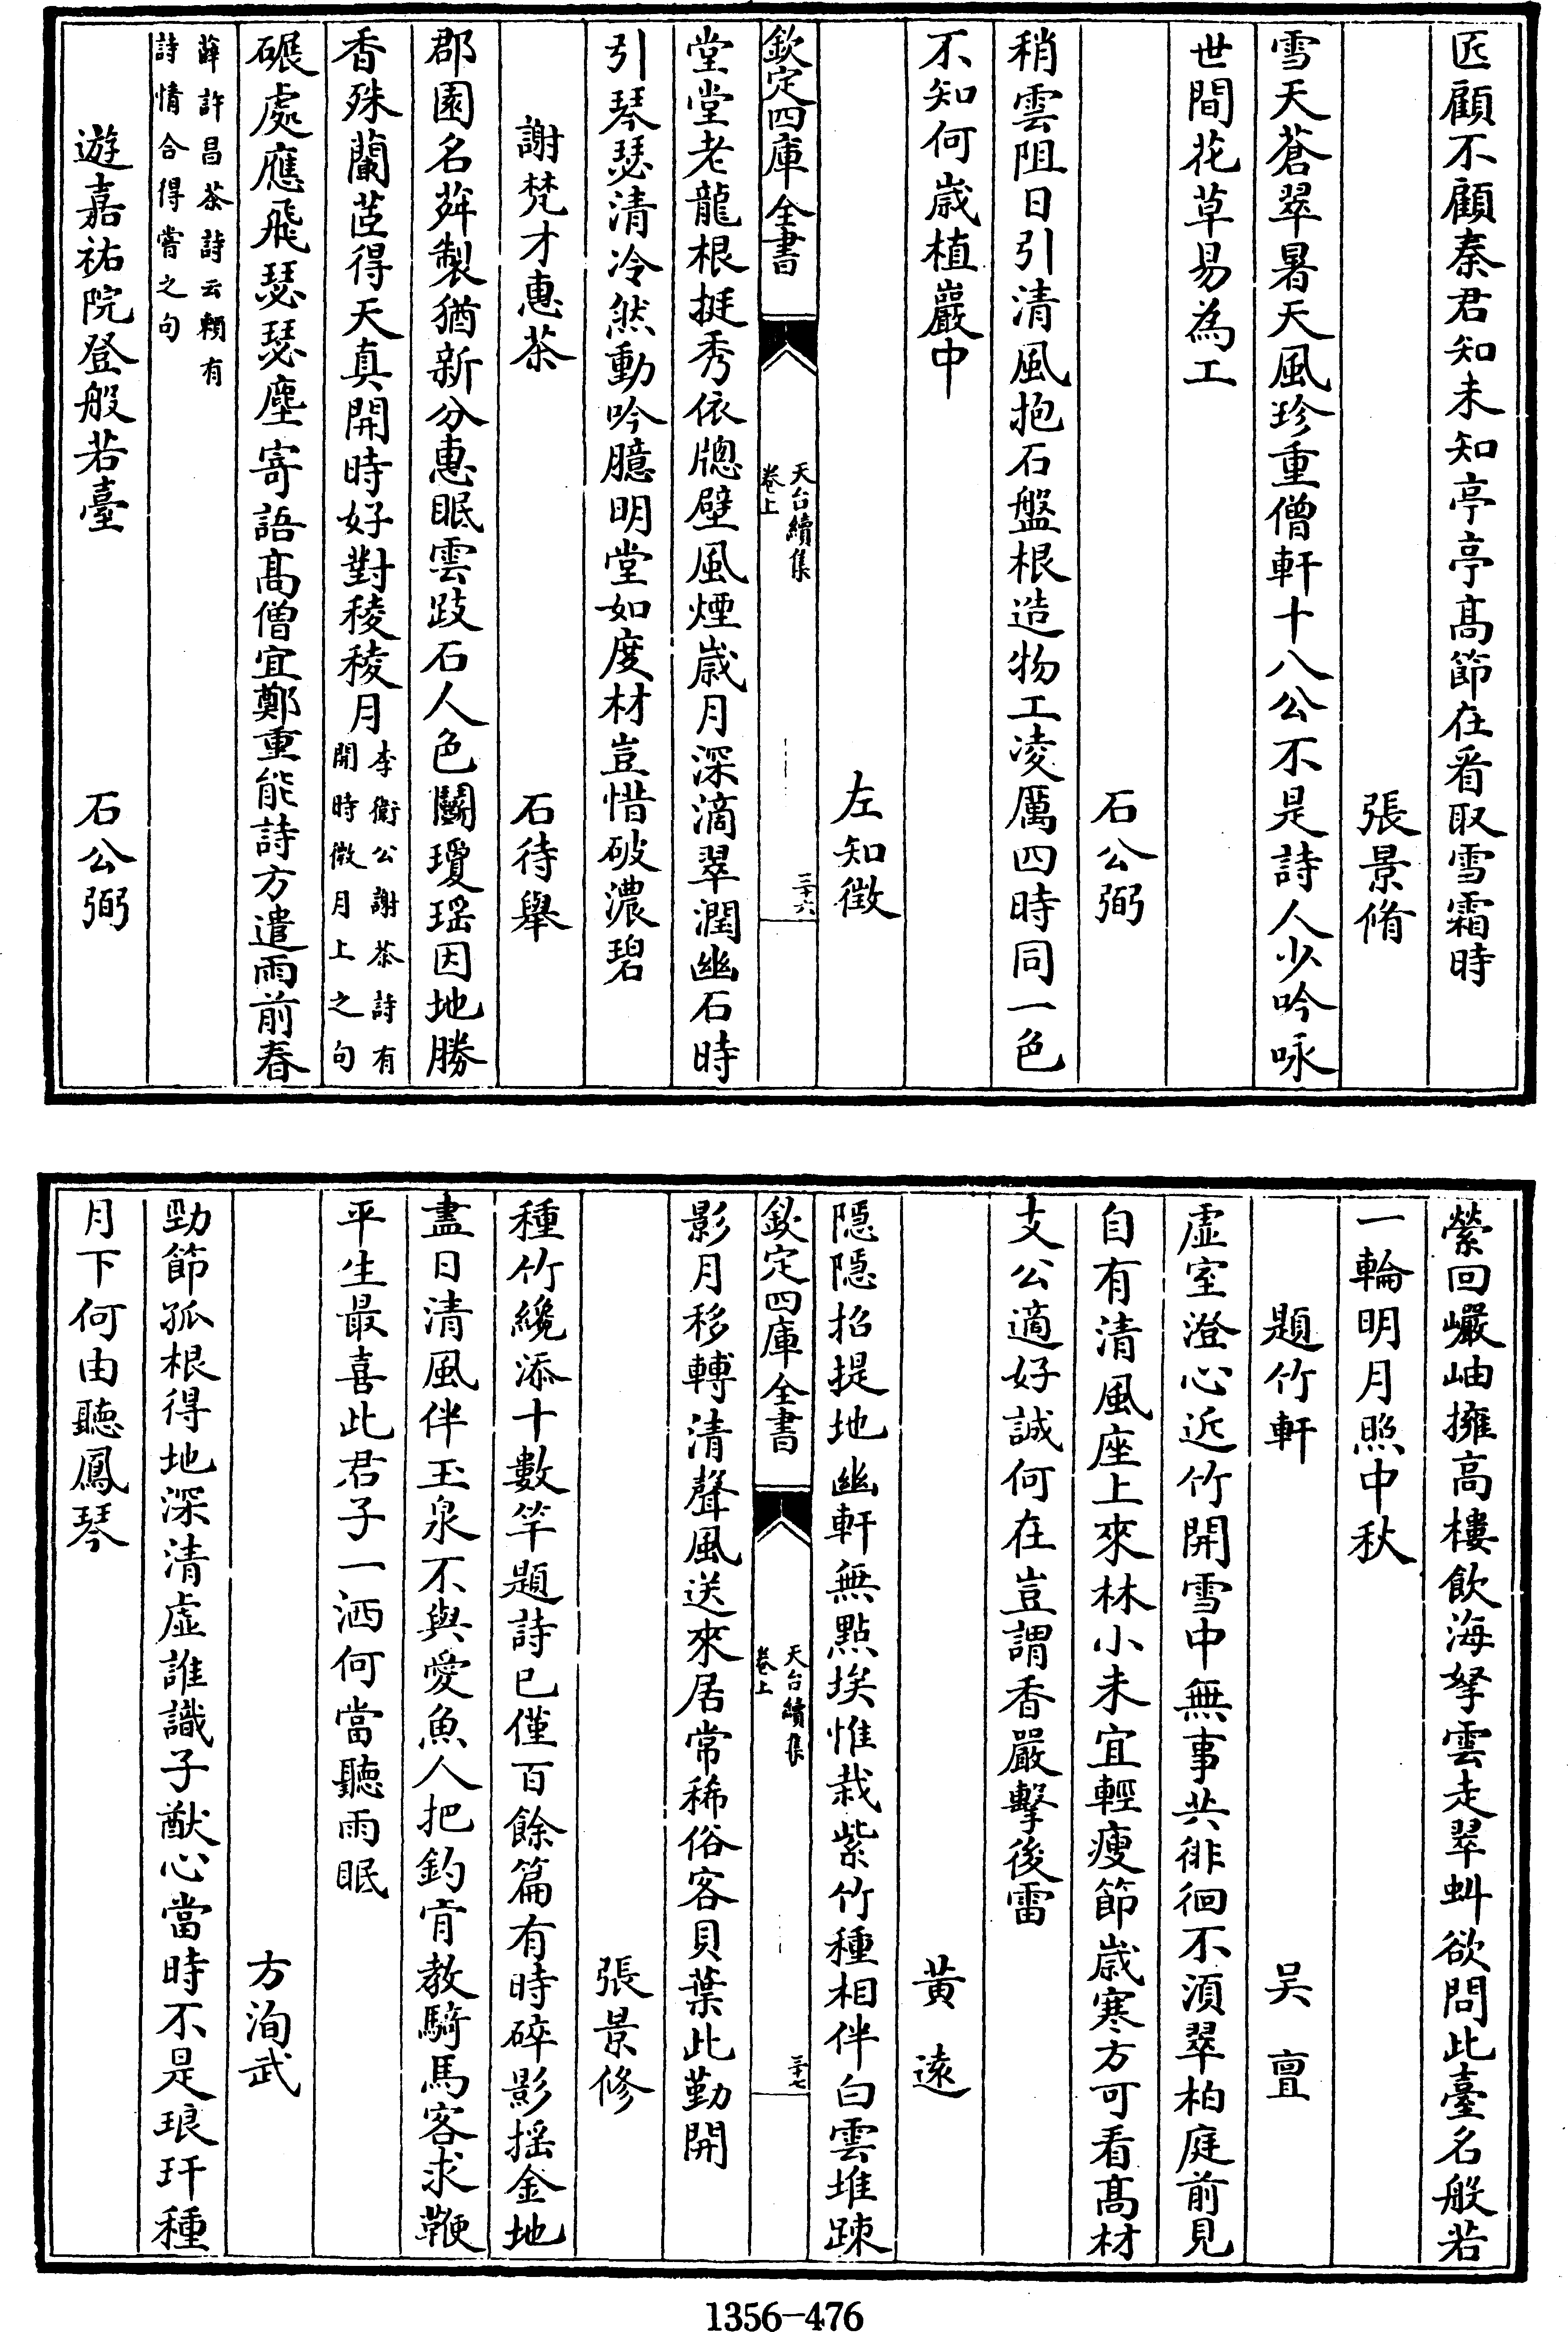 匠顧不顧秦君知未知亭亭髙節在看取雪霜時
張景脩
雪天蒼翠暑天風珍重僧軒十八公不是詩人少吟咏
世間花草易為工
石公弼
稍雲阻日引清風抱石盤根造物工凌厲四時同一色
不知何歳植巖中
左知微
欽定四庫全書
天台續集
卷上
三十六
堂堂老龍根挺秀依牎壁風煙歳月深滴翠潤幽石時
引琴瑟清冷然動吟臆明堂如度材豈惜破濃碧
謝梵才惠茶
石待舉
郡園名荈製猶新分惠眠雲跂石人色鬭瓊瑶因地勝
香殊蘭茝得天真開時好對稜稜月
李衛公謝茶詩有
開時微月上之句
碾處應飛瑟瑟塵寄語髙僧宜鄭重能詩方遣雨前春
薛許昌茶詩云頼有
詩情合得嘗之句
遊嘉祐院登般若臺
石公弼
縈回巗岫擁高樓飲海拏雲走翠虯欲問此臺名般若
一輪明月照中秋
題竹軒
吴亶
虚室澄心近竹開雪中無事共徘徊不須翠柏庭前見
自有清風座上來林小未宜輕瘦節歳寒方可看髙材
支公適好誠何在豈謂香嚴擊後雷
黄逺
隠隠招提地幽軒無點埃惟栽紫竹種相伴白雲堆踈
欽定四庫全書
天台續集
卷上
三十七
影月移轉清聲風送來居常稀俗客貝葉此勤開
張景修
種竹纔添十數竿題詩已僅百餘篇有時碎影揺金地
盡日清風伴玉泉不與愛魚人把釣肯教騎馬客求鞭
平生最喜此君子一洒何當聽雨眠
方洵武
勁節孤根得地深清虚誰識子猷心當時不是琅玕種
月下何由聽鳳琴
1356-476